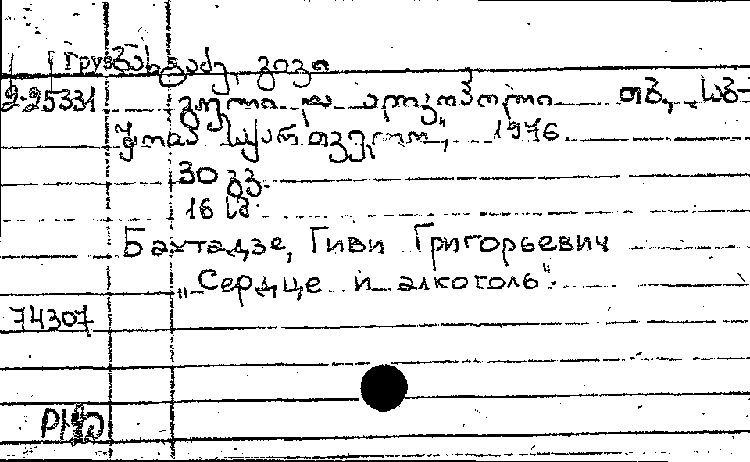 Груз ბახტაძე, გივი
2-25331 გული და ალკოჰოლი თბ., „საბ-
ჭოთა საქართველო", 1976
30 გვ.
16 სმ.
Бахтадзе, Гиви Григорьевич
„Сердце и алкоголь".
74307